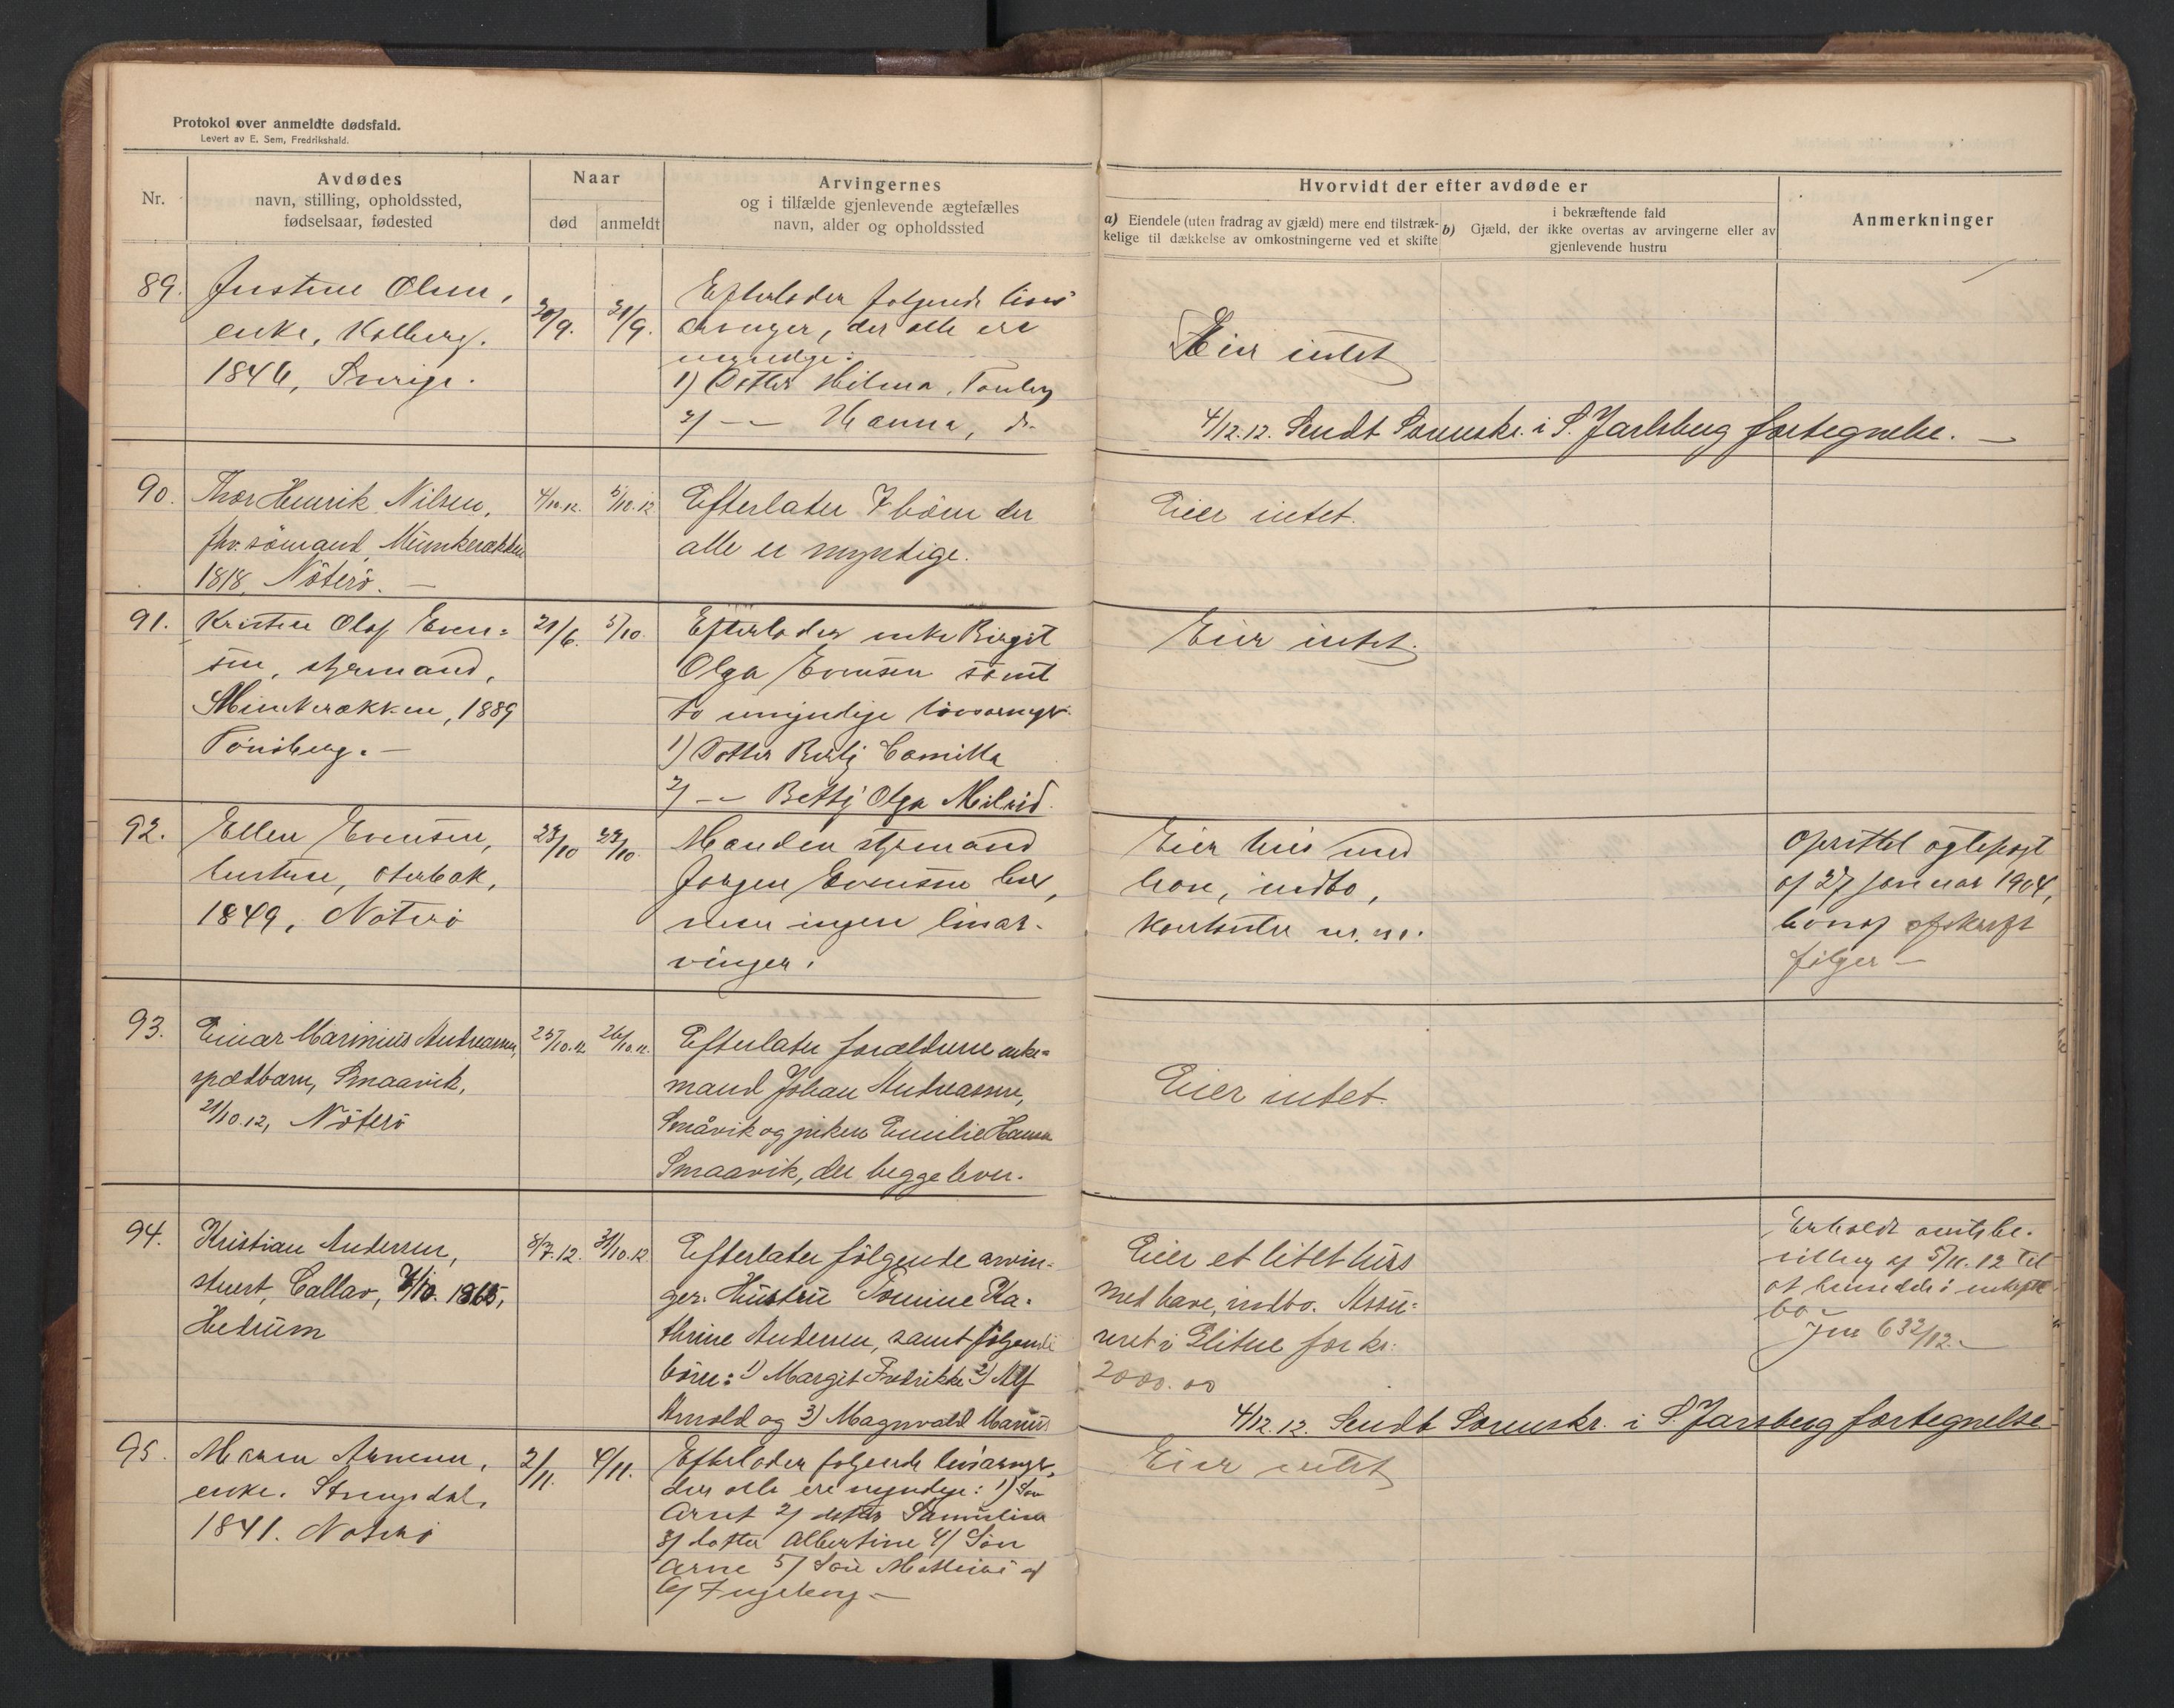 Protokol over anmeldte dødsfald.
Levert av E. Sem, Fredrikshald.
Nr.
Avdødes
navn, stilling, opholdssted,
fødselsaar, fødested
Naar
død
anmeldt
Arvingernes
og i tilfælde gjenlevende ægtefælles
navn, alder og opholdssted
Hvorvidt der efter avdøde er
a) Eiendele (uten fradrag av gjæld) mere end tilstræk-
kelige til dækkelse av omkostningerne ved et skifte
i bekræftende fald
b) Gjæld, der ikke overtas av arvingerne eller av
gjenlevende hustru
Anmerkninger
89.
Justine Olsen,
enke, Kolberg.
1846, Sverige.
30/9.
Efterlader følgende livs
arvinger, der alle ere
myndige:
1) Datter Hilma, Tønsberg
2) — Hanna, do
Eier intet
4/12.12. Sendt Sorenskr. i S. Jarlsberg fortegnelse. —
90.
Thor Henrik Nilsen,
fhv. sömand, Munkerækken
1818, Nöterö. —
4/10.12.
5/10.12
Efterlater 7 börn der
alle er myndige.
Eier intet.
91.
Kristen Olaf Even=
sen, styrmand,
Munkerækken, 1889
Tönsberg. —
21/6.
5/10.
Efterlader enke Birgit
Olga Evensen samt
to umyndige livsarvger.
1) Datter Camilla
2) — Betty Olga Milrid.
Eier intet.
92.
Ellen Evensen,
hustru, Oterbæk,
1849, Nöterö
23/10
23/10.
Manden styrmand
Jørgen Evensen lever,
men ingen livsar-
vinger.
Eier hus med
have, indbo,
kontanter m. m.
Oprettet ægtepagt
af 27 januar 1904,
hvoraf afskrift
følger —
93.
Einar Marinius Andreassen,
spædbarn, Smaavik,
21/10.12, Nöterö
25/10.12
26/10.12.
Efterlater forældrene enke=
mand Johan Andreassen,
Småvik og piken Emilie Hansen
Smaavik, der begge lever.
Eier intet.
94.
Kristian Andersen,
stuert, Callao, 1865,
Hedrum
8/7.12.
31/10.12
Efterlater følgende arvin=
ger: Hustru Tomine Ka=
thrine Andersen, samt følgende
börn: 1) Margit Fredrikke 2) Alf
Arnold og 3) Magnvald Marius
Eier et litet hus
med have, indbo. Assu=
reret i for kr.
2000.00
Erholdt amtsbe-
villing af 5/11.12 til
at hensidde i uskiftet
bo
Jnr 632/12. —
4/12.12. Sendt Sorenskr. i S. Jarsberg fortegnelse
95.
Maren Arnesen,
enke. Strengsdal,
1841. Nöterö
2/11.
4/11.
Efterlader følgende livsarvgr,
der alle ere myndige: 1) Søn
Arnt 2) datter
3) datter Albertine 4) Søn
Arne 5) Søn Mathias og
6) Ingeborg —
Eier intet